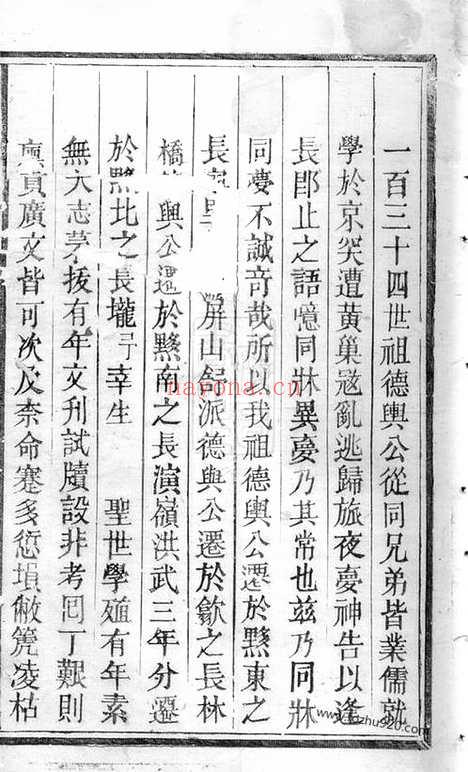 一百三十四世祖德輿公從同兄弟皆業儒就
學於京突遭黃巢寇亂逃歸旅夜夢神告以逢
長卽止之語憶同牀異夢乃其常也茲乃同牀
同夢不誠竒哉所以我祖德輿公遷於黟東之
長 屏山舒派德與公遷於歙之長林
橋 輿公遷於黟南之長演嶺洪武三年分遷
於黟北之長壠予幸生 聖世學殖有年素
無大志茅拔有年文刋試牘設非考囘丁艱則
廩貢廣文皆可次及奈命蹇多愆塤敝箎凌枯
nayona.com
www.guzhu920.com